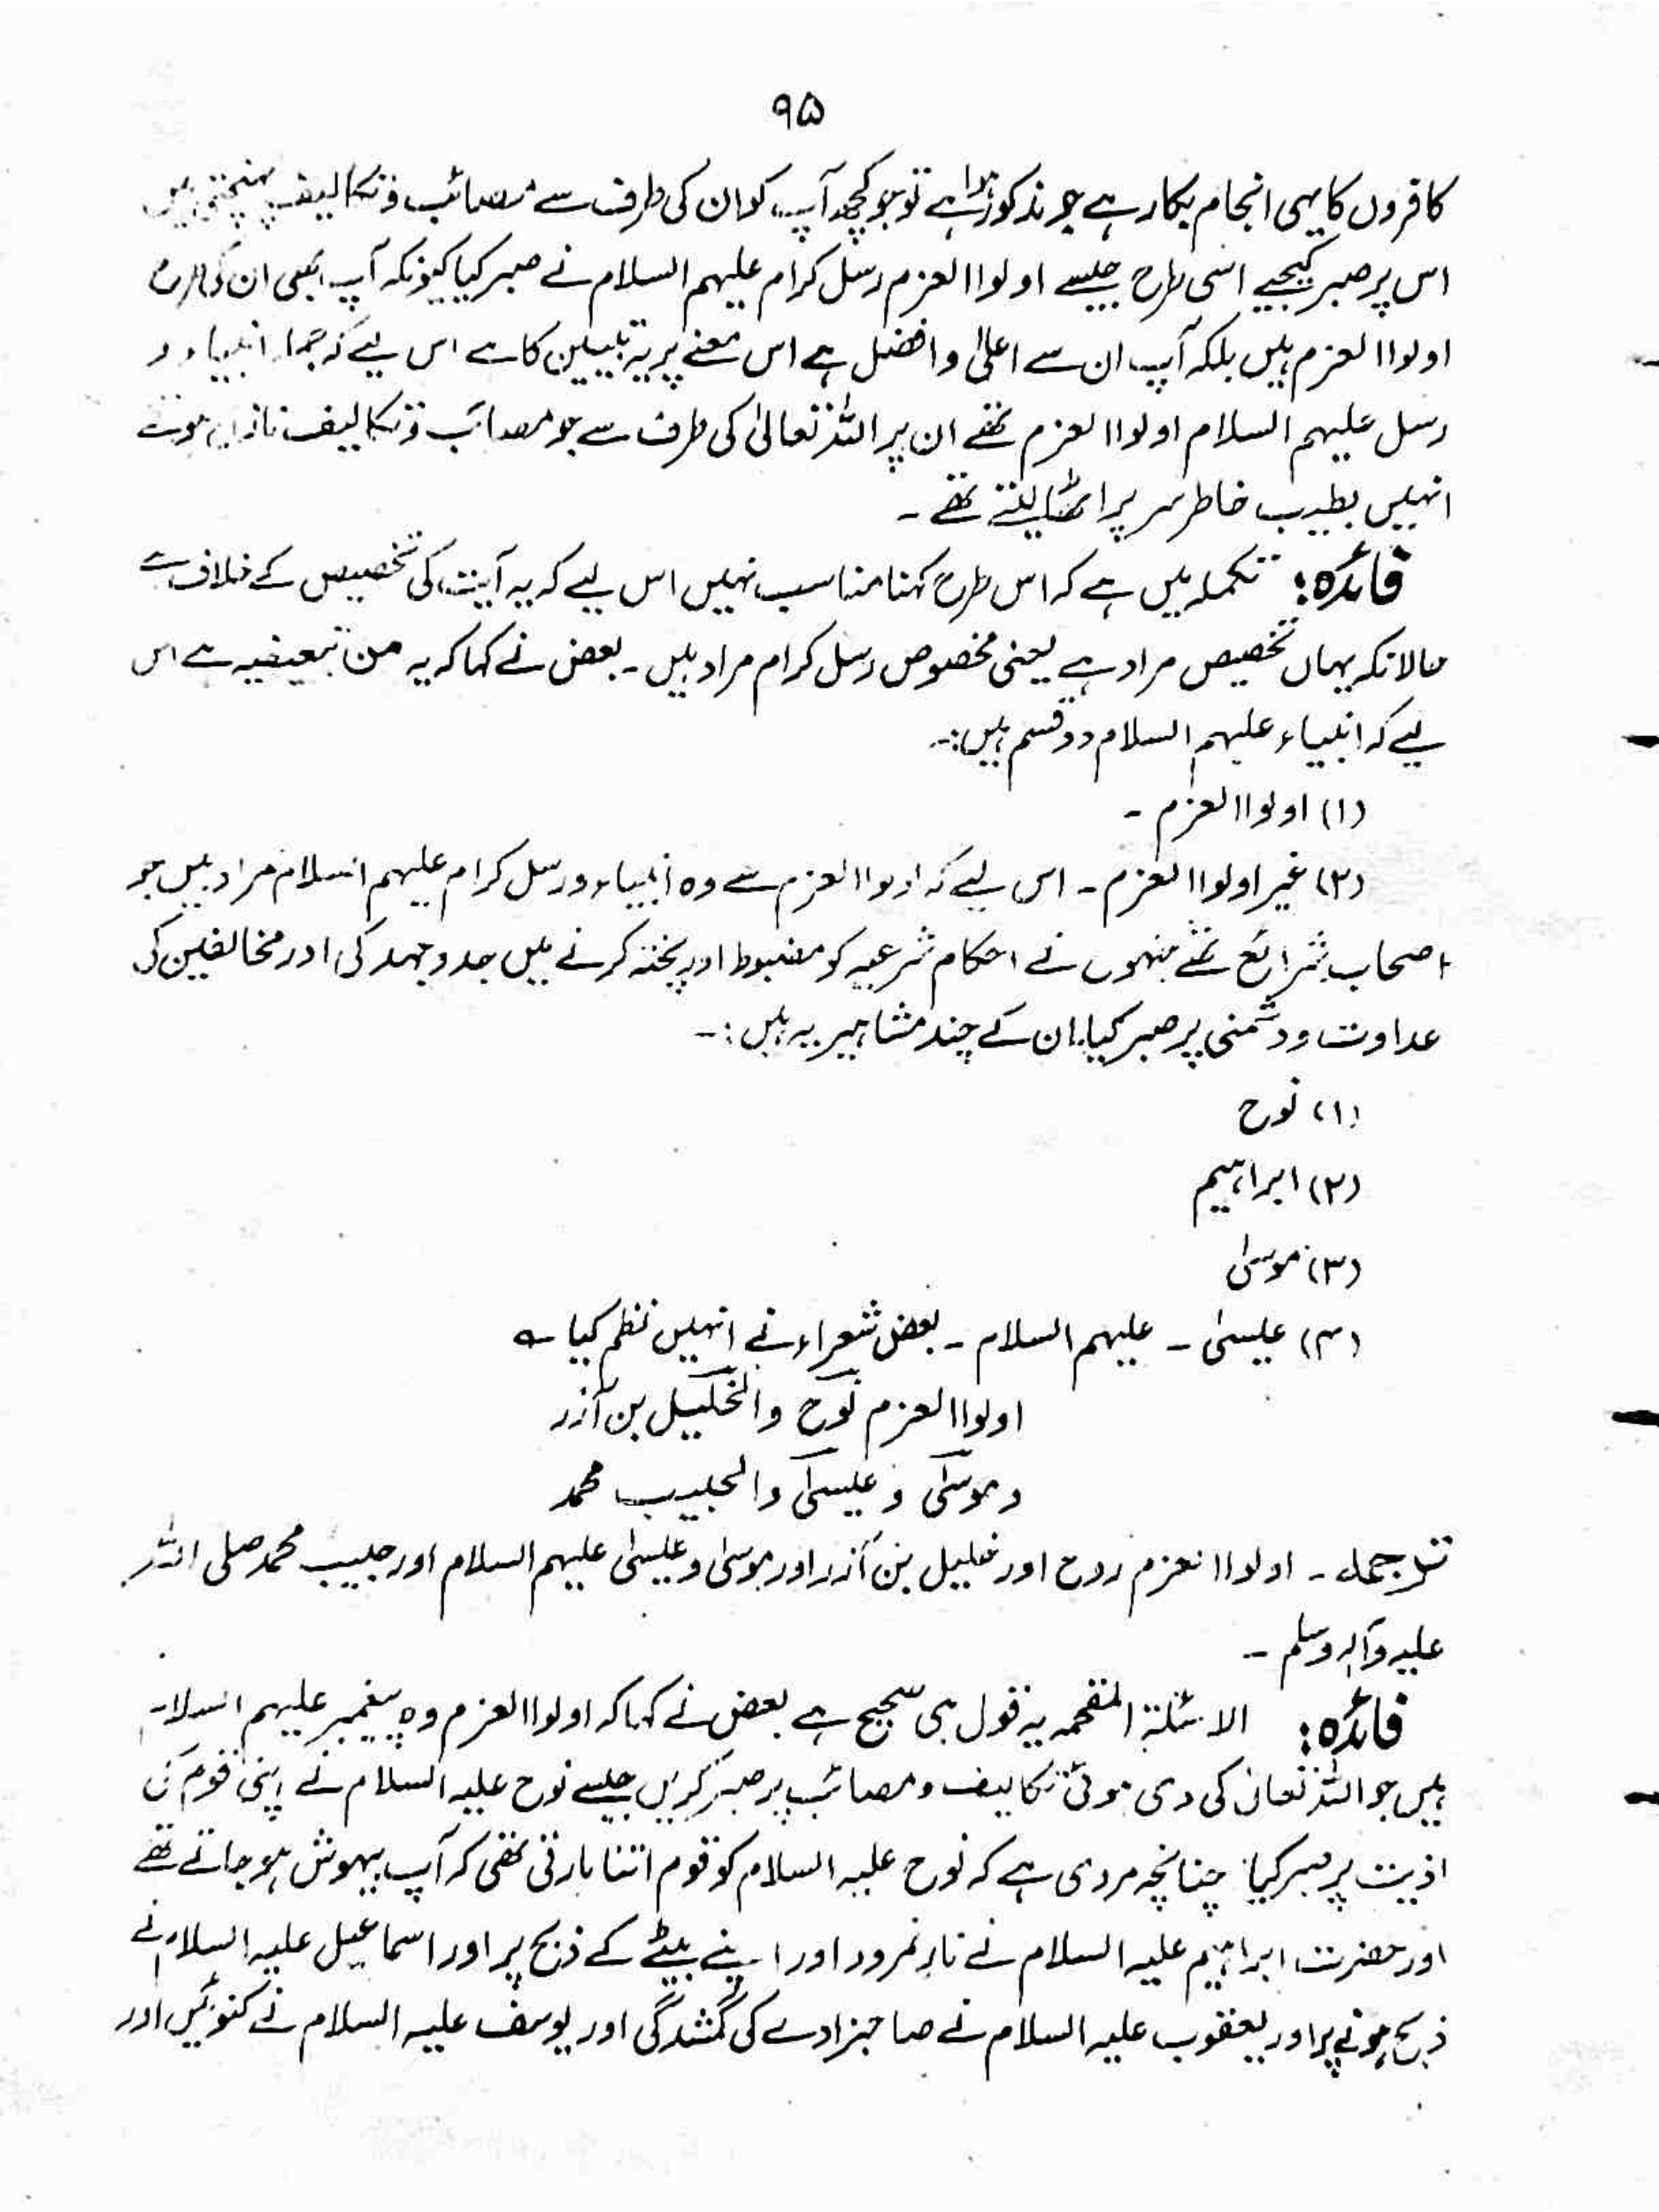 ۹۵
کافروں کا یہی انجام بکار ہے جو مذکور ہوا ہے تو جو کچھ آپ کو ان کی طرف سے مصائب و تکالیف پہنچتی ہیں
اس پر صبر کیجیے اسی طرح جیسے اولوا العزم رسل کرام علیہم السلام نے صبر کیا کیونکہ آپ بھی ان کی طرح
اولوا العزم ہیں بلکہ آپ ان سے اعلیٰ و افضل ہے اس معنے پر یہ تبیین کا ہے اس لیے کہ جملہ انبیاء و
رسل علیہم السلام اولوا العزم تھے ان پر اللہ تعالیٰ کی طرف سے جو مصائب و تکالیف نازل ہوتے
انہیں بطیب خاطر سر پر اٹھا لیتے تھے ۔
فائدہ: تکملہ میں ہے کہ اس طرح کہنا مناسب نہیں اس لیے کہ یہ آیت کی تخصیص کے خلاف ہے
حالانکہ یہاں تخصیص مراد ہے یعنی مخصوص رسل کرام مراد ہیں ۔ بعض نے کہا کہ یہ من تبعیضیہ ہے اس
لیے کہ انبیاء علیہم السلام دو قسم ہیں :۔
(۱) اولوا العزم ۔
(۲) غیر اولوا العزم ۔ اس لیے کہ اولوا العزم سے وہ انبیاء و رسل کرام علیہم السلام مراد ہیں جو
اصحاب شرائع تھے جنہوں نے احکام شرعیہ کو مضبوط اور پختہ کرنے میں جدوجہد کی اور مخالفین کی
عداوت و دشمنی پر صبر کیا ان کے چند مشاہیر یہ ہیں :۔
(۱) نوح
(۲) ابراہیم
(۳) موسیٰ
(۴) عیسیٰ ۔ علیہم السلام ۔ بعض شعراء نے انہیں نظم کیا ؎
اولوا العزم نوح والخلیل بن آزر
وموسیٰ وعیسیٰ والحبیب محمد
ترجمہ ۔ اولوا العزم نوح اور خلیل بن آزر اور موسیٰ و عیسیٰ علیہم السلام اور حبیب محمد صلی اللہ
علیہ وآلہ وسلم ۔
فائدہ: الاسئلۃ المقحمہ یہ قول ہی صحیح ہے بعض نے کہا کہ اولوا العزم وہ پیغمبر علیہم السلام
ہیں جو اللہ تعالیٰ کی دی ہوئی تکالیف و مصائب پر صبر کریں جیسے نوح علیہ السلام نے اپنی قوم کی
اذیت پر صبر کیا چنانچہ مروی ہے کہ نوح علیہ السلام کو قوم اتنا مارتی تھی کہ آپ بیہوش ہو جاتے تھے
اور حضرت ابراہیم علیہ السلام نے نارِ نمرود اور اپنے بیٹے کے ذبح پر اور اسماعیل علیہ السلام نے
ذبح ہونے پر اور یعقوب علیہ السلام نے صاحبزادے کی گمشدگی اور یوسف علیہ السلام نے کنوئیں اور